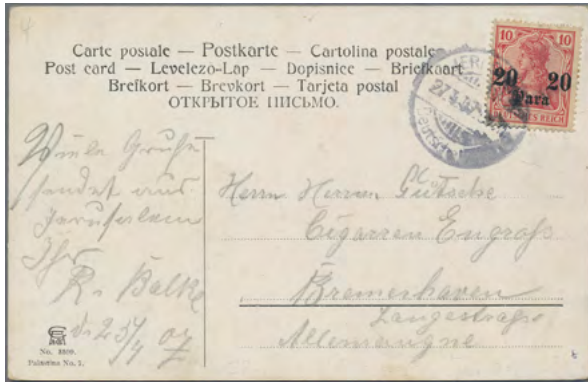 Carte postale — Postkarte — Cartolina postale
Post card — Levelezo-Lap — Dopisnice — Briefkaart
Brefkort — Brevkort — Tarjeta postal
ОТКРЫТОЕ ПИСЬМО.
10 10
20 20
Para
DEUTSCHES REICH
Viele Grüße
sendet aus
Jerusalem
Ihr
R. Balke
Herrn Herman
Cigarren Engros
Bremerhaven
Langestraße
Allemangne
No. 3309.
Palästina No. 1.